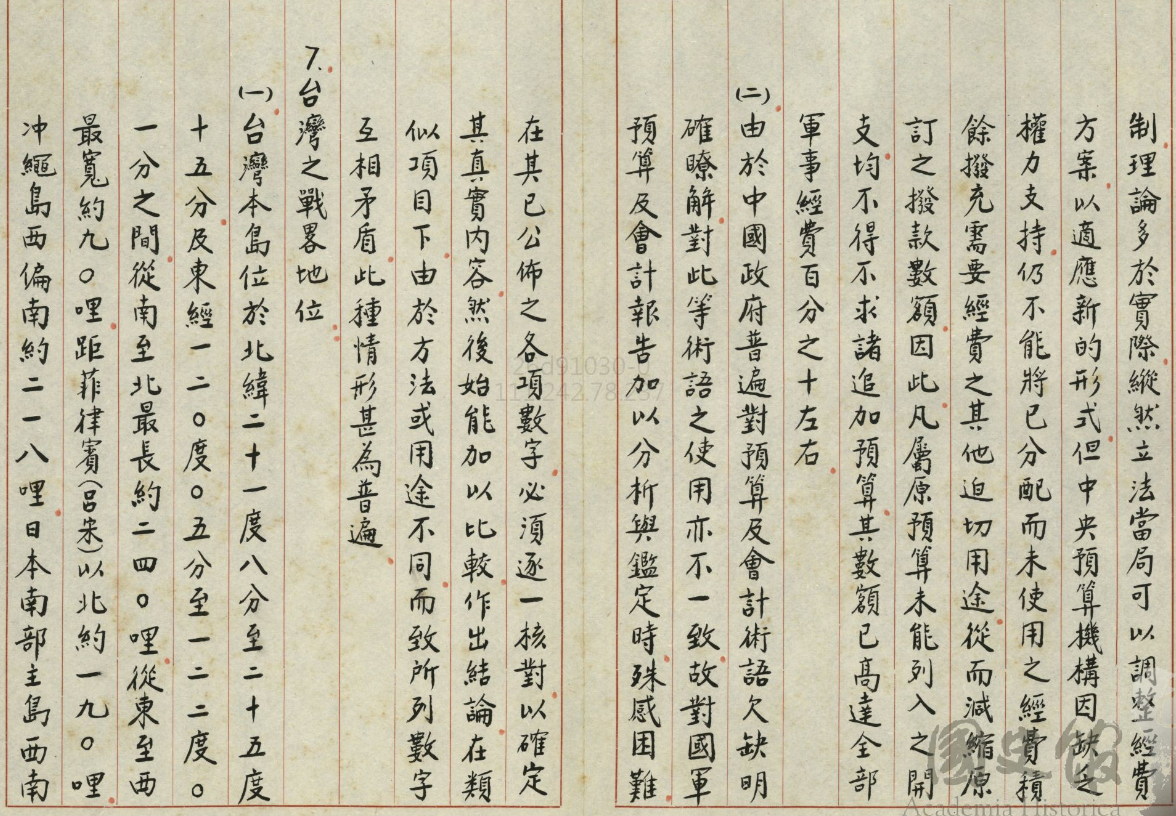 制理論多於實際縱然立法當局可以調整經費
方案以適應新的形式但中央預算機構因缺乏
權力支持仍不能將已分配而未使用之經費積
餘撥充需要經費之其他迫切用途從而減縮原
訂之撥款數額因此凡屬原預算未能列入之開
支均不得不求諸追加預算其數額已高達全部
軍事經費百分之十左右
(二)由於中國政府普遍對預算及會計術語欠缺明
確瞭解對此等術語之使用亦不一致故對國軍
預算及會計報告加以分析與鑑定時殊感困難
在其已公佈之各項數字必須逐一核對以確定
其真實內容然後始能加以比較作出結論在類
似項目下由於方法或用途不同而致所列數字
互相矛盾此種情形甚為普遍
7.台灣之戰畧地位
(一)台灣本島位於北緯二十一度八分至二十五度
十五分及東經一二〇度〇五分至一二二度〇
一分之間從南至北最長約二四〇哩從東至西
最寬約九〇哩距菲律賓(呂宋)以北約一九〇哩
冲繩島西偏南約二一八哩日本南部主島西南
國史館
Academia Historica